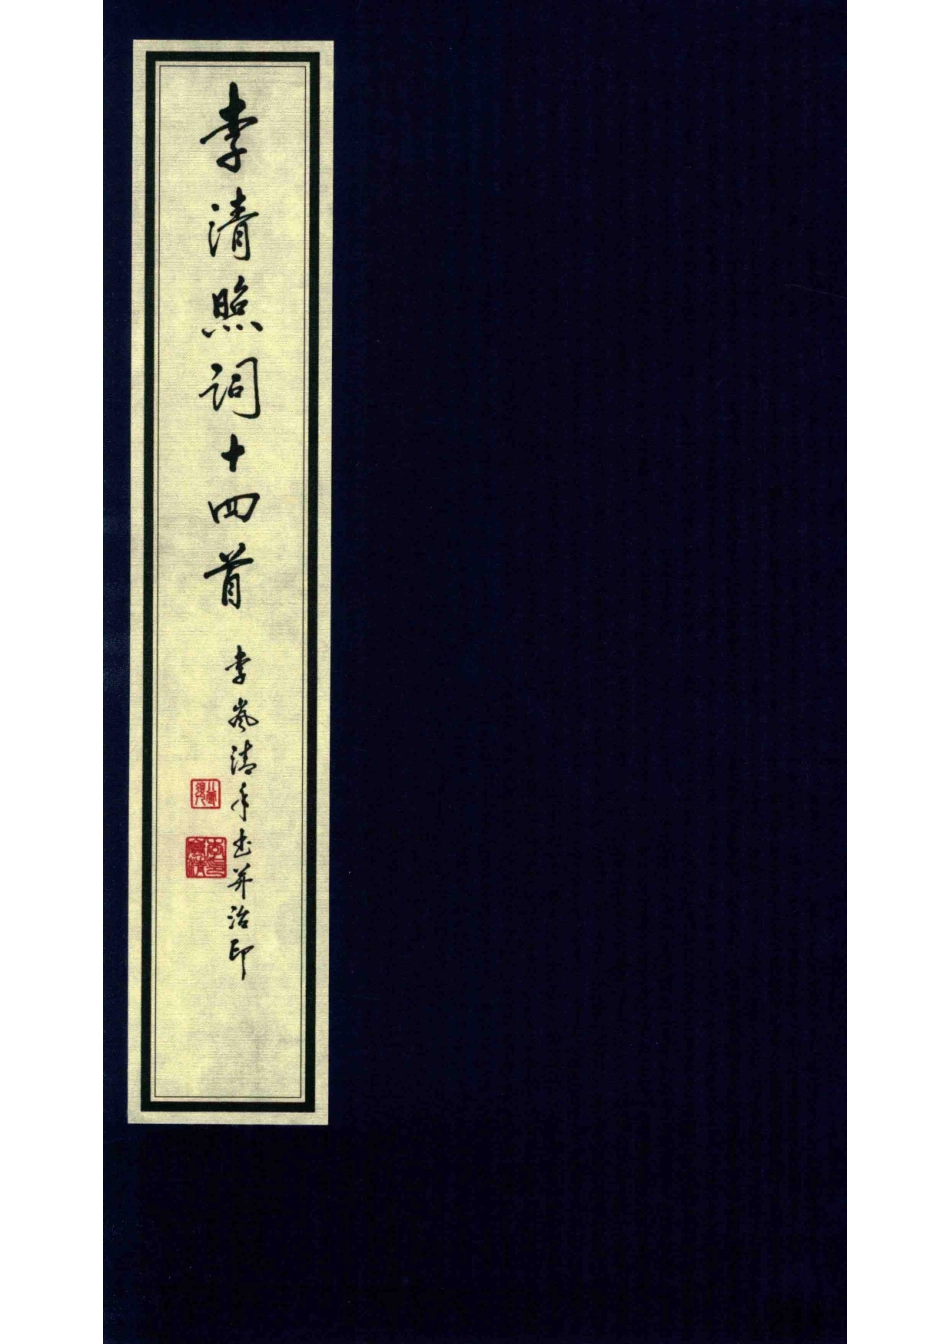 李清照词十四首
李岚清手书并治印